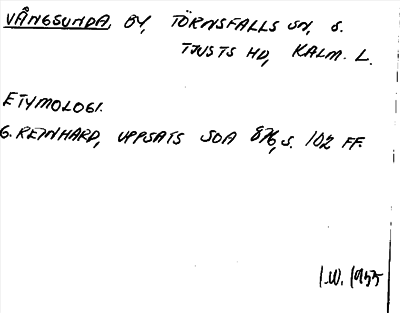 VÅNGSUNDA, BY, TÖRNSFALLS SN, S.
TJUSTS HD, KALM. L.
ETYMOLOGI.
G. REINHARD, UPPSATS SOA 876, S. 102 FF.
I.W. 1955